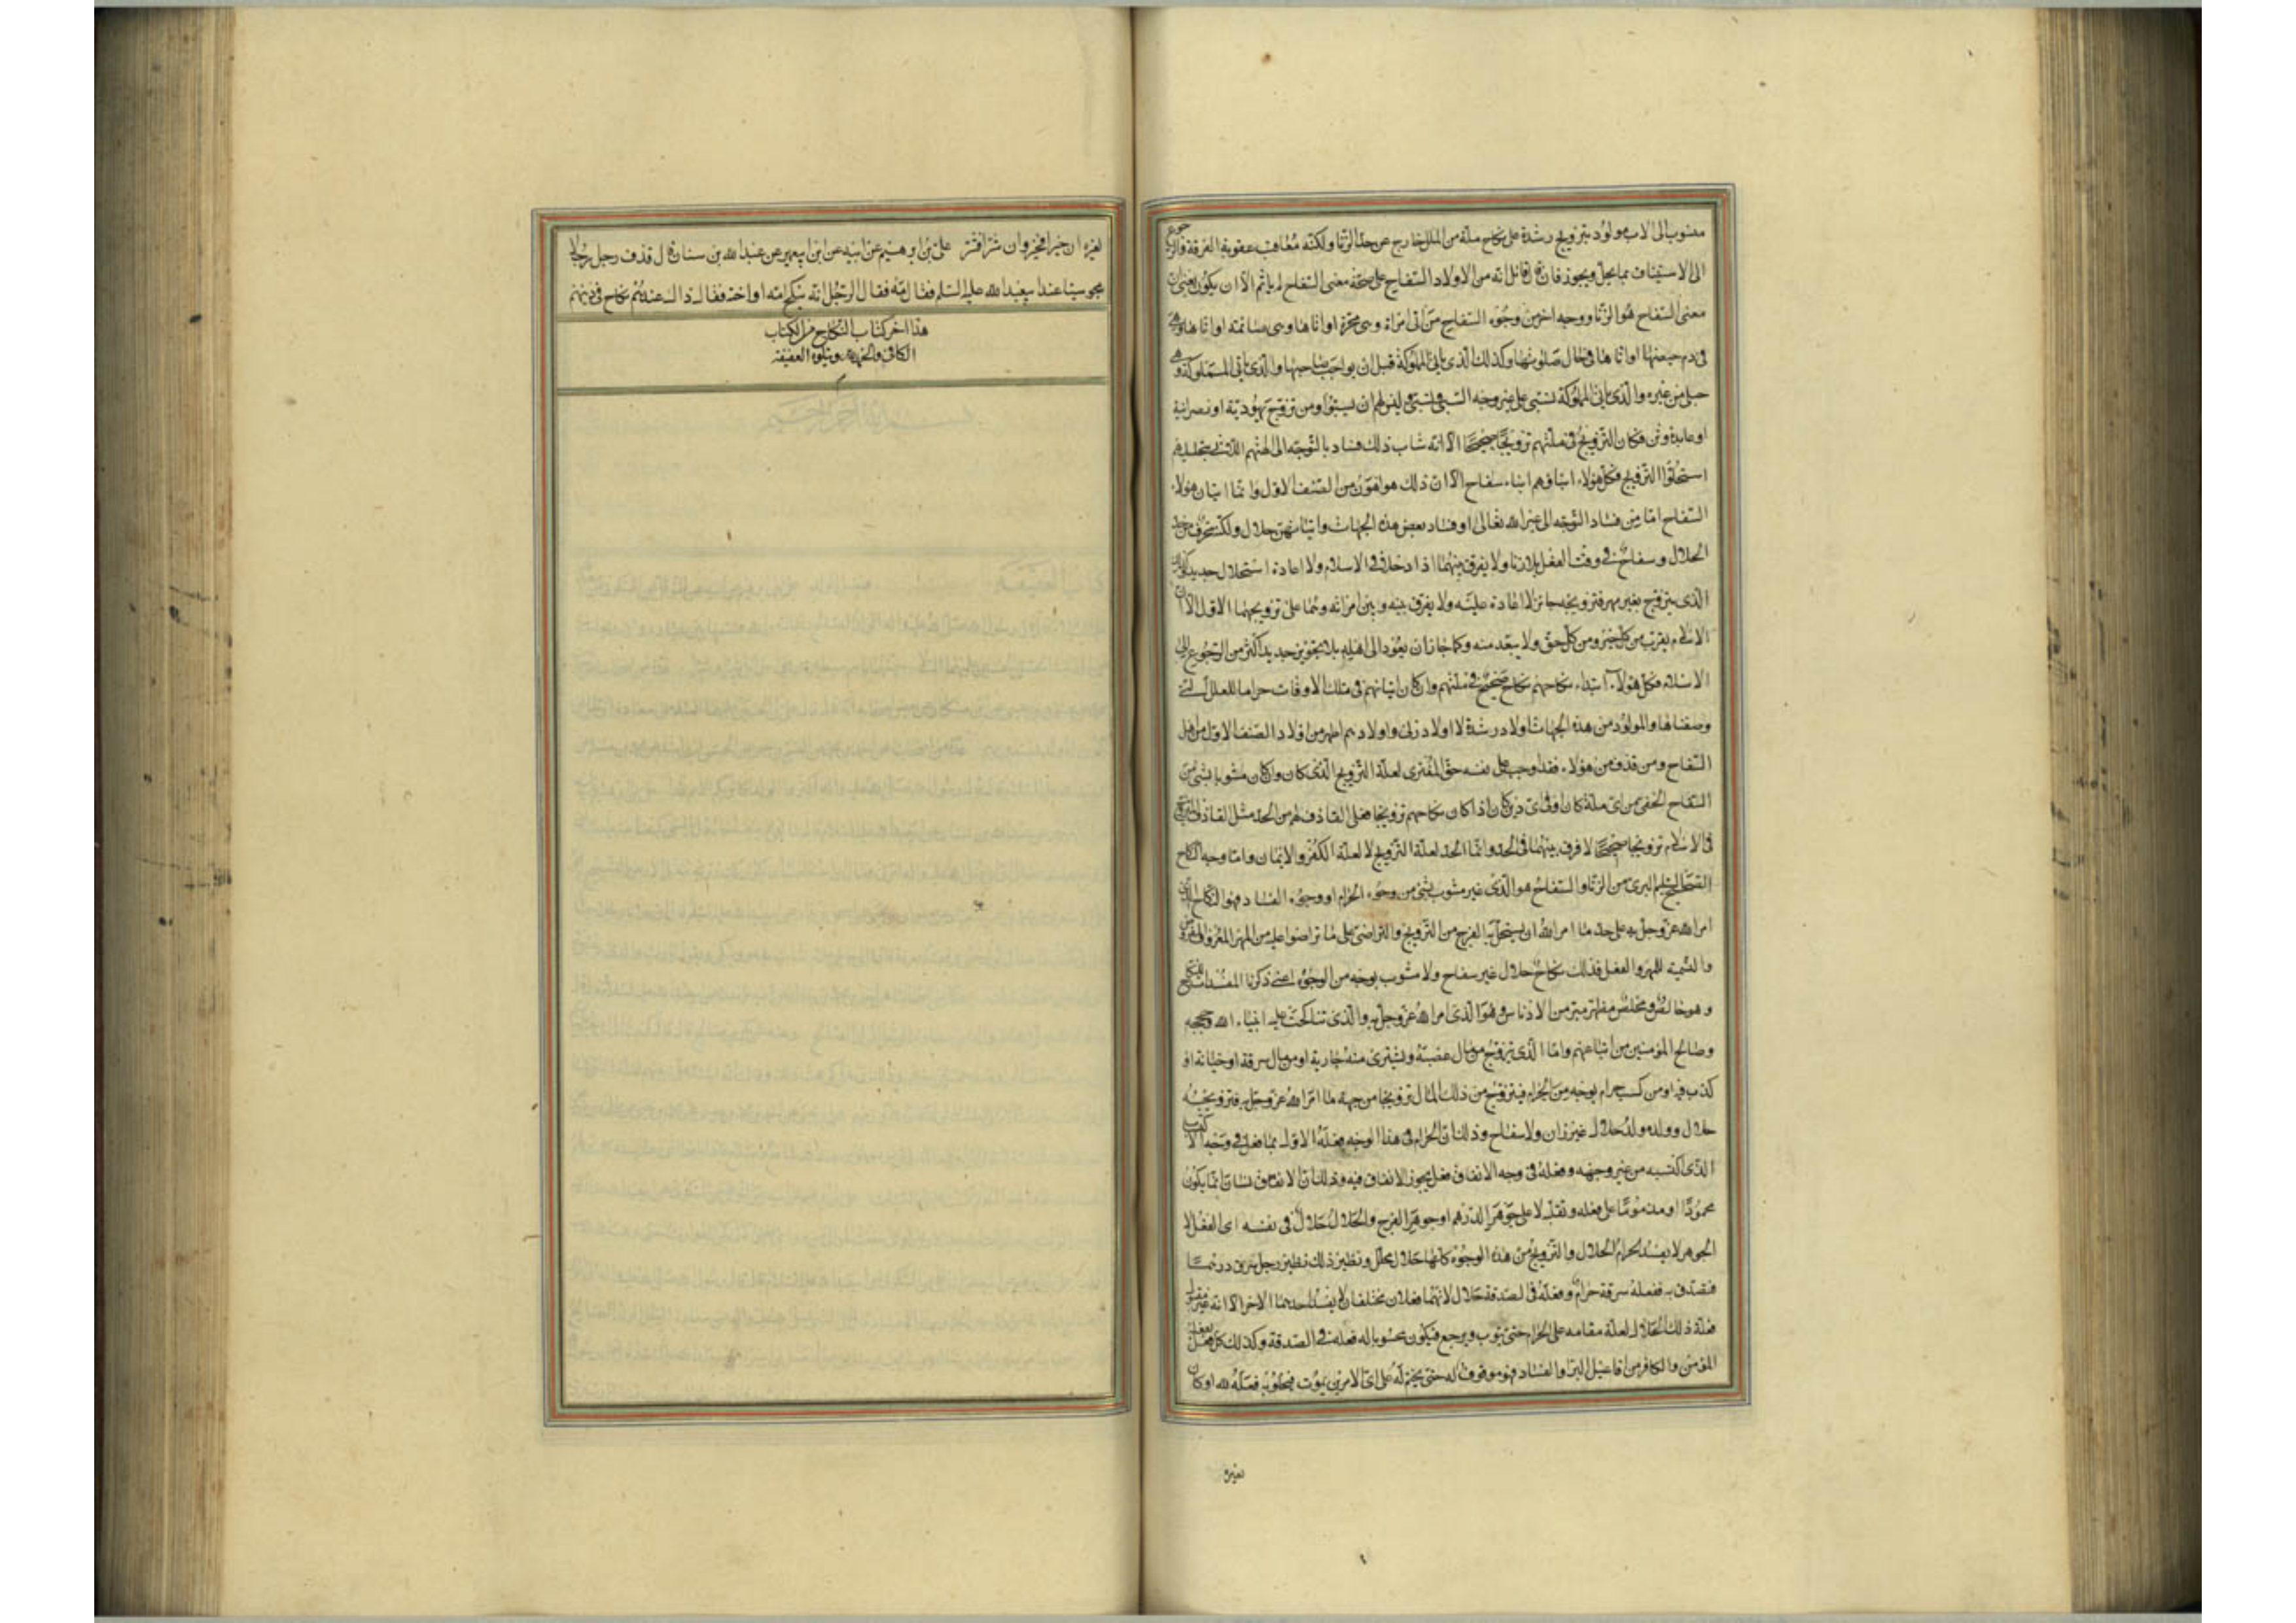 منسوب الى الاب مولود بتزويج رشدة على نكاح ملة من الملل خارج عن حد الزنا ولكنه معاقب عقوبة الفرقة والرجوع
الى الاستيناف بما يحل ويجوز فان قال قائل انه من الاولاد السفاح على صحة معنى السفاح لم ياثم الا ان يكون يعنى ان
معنى السفاح هو الزنا ووجه اخر من وجوه السفاح من اتى امراة وهى محرمة او اتاها وهى صائمة او اتاها وهى
فى دم حيضها او اتاها فى حال صلوتها وكذلك الذى ياتى المملوكة قبل ان يواجب صاحبها والذى ياتى المملوكة وهى
حبلى من غيره والذى ياتى المملوكة تسبى على غير وجه السبى وتسبى وليس لهم ان يسبوا ومن تزوج يهودية او نصرانية
او عابدة وثن وكان التزويج فى ملتهم تزويجا صحيحا الا انه شاب ذلك فساد بالتوجه الى الهتهم اللاتى بتحليلهم
استحلوا التزويج فكل هؤلاء ابناؤهم ابناء سفاح الا ان ذلك هو اهون من الصنف الاول وانما اتيان هؤلاء
السفاح اما من فساد التوجه الى غير الله تعالى او فساد بعض هذه الجهات واتيانهن حلال ولكن محرف من حد
الحلال وسفاح فى وقت الفعل بلا زنا ولا يفرق بينهما اذا دخلا فى الاسلام ولا اعادة استحلال جديد وكذلك
الذى يتزوج بغير مهر فتزويجه جائز لا اعادة عليه ولا يفرق بينه وبين امراته وهما على تزويجهما الاول الا ان
الاسلام يقرب من كل خير ومن كل حق ولا يبعد منه وكما جاز ان يعود الى اهله بلا تزويج جديد اكثر من الرجوع الى
الاسلام فكل هؤلاء ابتداء نكاحهم نكاح صحيح فى ملتهم وان كان اتيانهم فى تلك الاوقات حراما للعلل التى
وصفناها والمولود من هذه الجهات اولاد رشدة لا اولاد زنى واولادهم اطهر من اولاد الصنف الاول من اهل
السفاح ومن قذف من هؤلاء فقد اوجب على نفسه حد المفترى لعلة التزويج الذى كان وان كان مشوبا بشئ من
السفاح الخفى من اى ملة كان او فى اى دين كان اذا كان نكاحهم تزويجا فعلى القاذف لهم من الحد مثل القاذف للمتزوج
فى الاسلام تزويجا صحيحا لا فرق بينهما فى الحد وانما الحد لعلة التزويج لا لعلة الكفر والايمان واما وجه النكاح
الصحيح السليم البرى من الزنا والسفاح هو الذى غير مشوب بشئ من وجوه الحرام او وجوه الفساد فهو النكاح الذى
امر الله عز وجل به على حد ما امر الله ان يستحل به الفرج من التزويج والتراضى على ما تراضوا عليه من المهر المعروف المفروض
والتسمية للمهر والفعل فذلك نكاح حلال غير سفاح ولا مشوب بوجه من الوجوه التى ذكرنا المفسدات للنكاح
وهو خالص مخلص مطهر مبرء من الادناس وهو الذى امر الله عز وجل به والذى تناكحت عليه انبياء الله وحججه
وصالح المؤمنين من اتباعهم واما الذى يتزوج من مال غصبه ويشترى منه جارية او من مال سرقة او خيانة او
كذب فيه او من كسب حرام بوجه من الحرام فيتزوج من ذلك المال تزويجا من جهة ما امر الله عز وجل به فتزويجه
حلال وولده ولد حلال غير زان ولا سفاح وذلك ان الحرام فى هذا الوجه فعله الاول بما فعل فى وجه الاكتساب
الذى اكتسبه من غير وجهه وفعله فى وجه الانفاق فعل يجوز الانفاق فيه وذلك ان الانسان انما يكون
محمودا او مذموما على فعله وتقلبه لا على جوهر الدرهم او جوهر الفرج والحلال حلال فى نفسه اى الفعل لا
الجوهر لا يفسد الحرام الحلال والتزويج من هذه الوجوه كلها حلال محلل ونظير ذلك نظير رجل سرق درهما
فتصدق به ففعله سرقة حرام وفعله فى الصدقة حلال لانهما فعلان مختلفان لا يفسد احدهما الاخر الا انه غير مقبول
فعله ذلك الحلال لعلة مقامه على الحرام حتى يتوب ويرجع فيكون محسوبا له فعله فى الصدقة وكذلك كل فعل يفعله
المؤمن والكافر من افاعيل البر او الفساد فهو موقوف له حتى يختم له على اى الامرين يموت فيخلو به فعله لله او كان
لغيره
لغيره ان خيرا فخير وان شرا فشر على بن ابرهيم عن ابيه عن ابن ابى عمير عن عبد الله بن سنان قال قذف رجل رجلا
مجوسيا عند ابى عبد الله عليه السلم فقال مه فقال الرجل انه ينكح امه او اخته فقال ذاك عندهم نكاح فى دينهم
هذا اخر كتاب النكاح من الكتاب
الكافى والحمد لله ويتلوه العقيقة